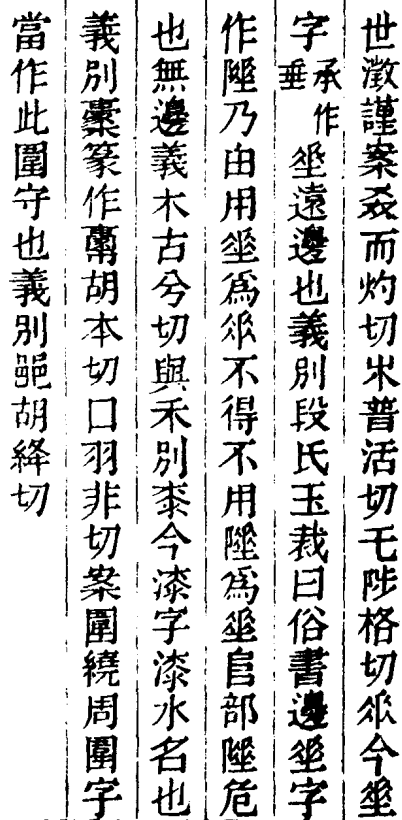 世澂謹案叒而灼切𣎵普活切乇陟格切𠂹今𡍮
字承作垂𡍮遠邊也義別段氏玉裁曰俗書邊𡍮字
作陲乃由用𡍮爲𠂹不得不用陲爲𡍮𨸏部陲危
也無邊義𥝌古兮切與禾別桼今漆字漆水名也
義別㯻篆作胡本切囗羽非切案圍繞周圍字
當作此圍守也義別𨛜胡絳切